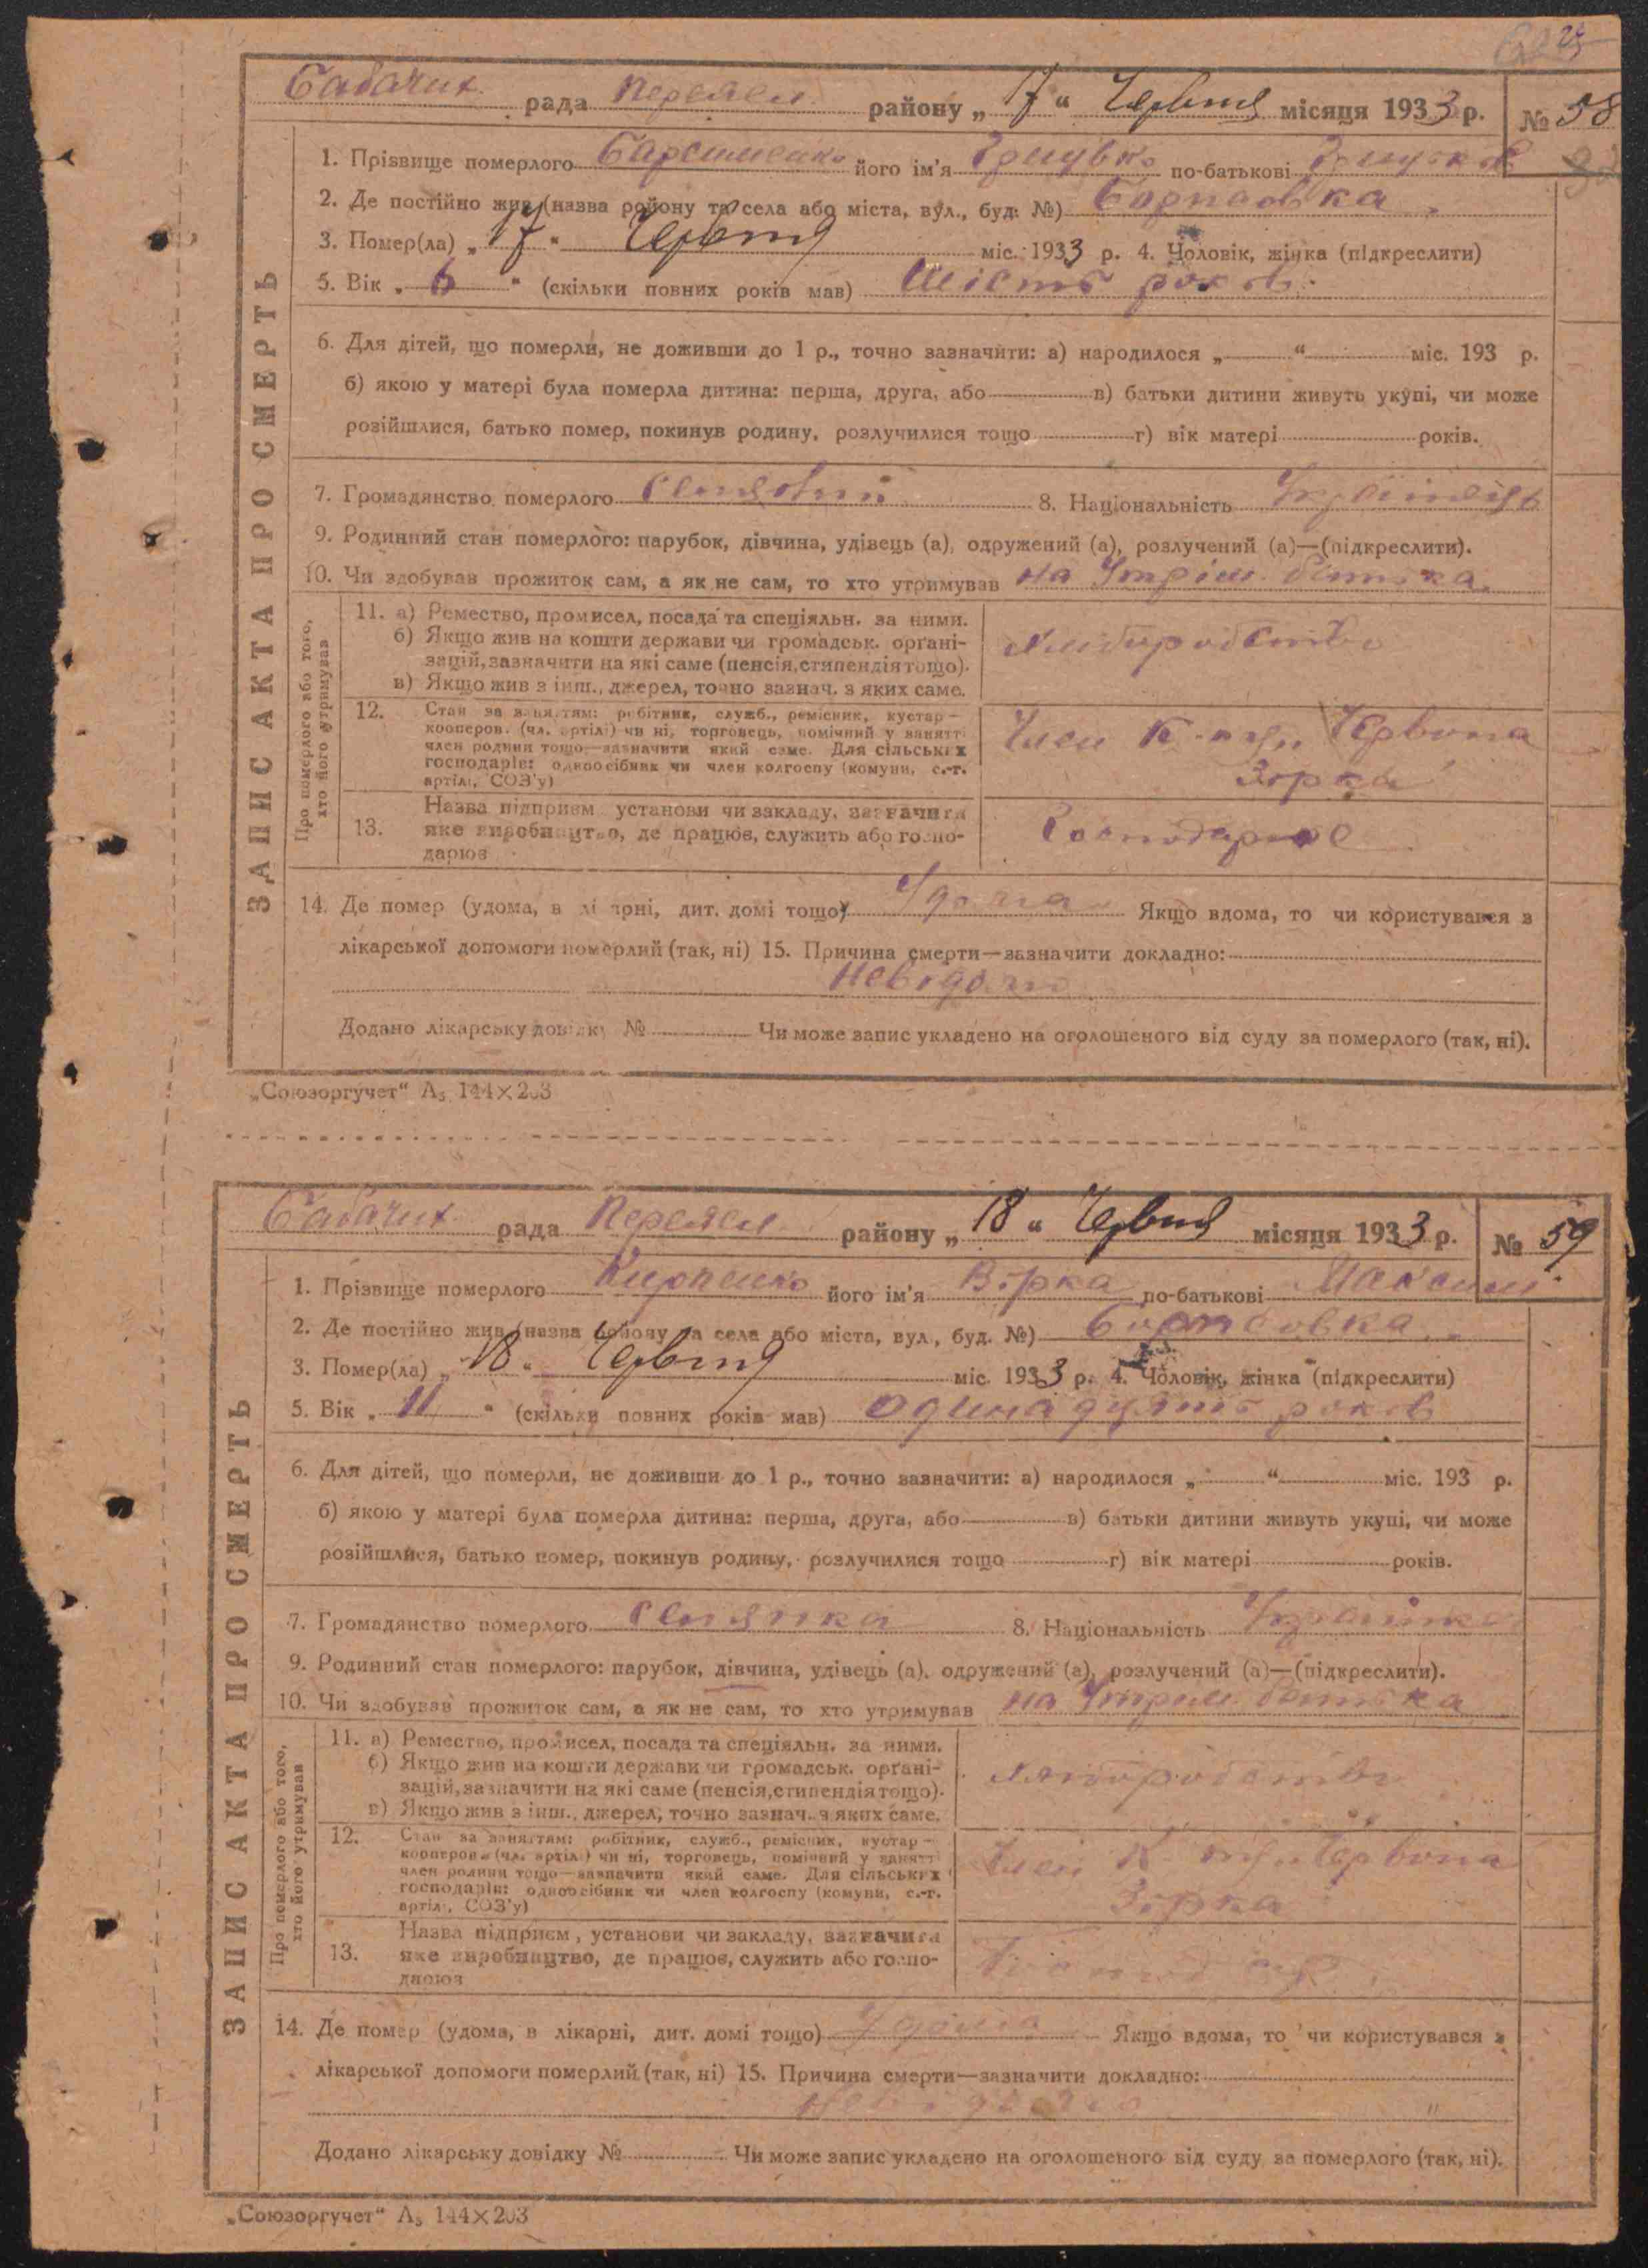 25
рада Переясл. району „ 17 “ Червня місяця 1933 р. № 58
1. Прізвище померлого його ім'я по-батькові
2. Де постійно жив (назва району та села або міста, вул., буд. №)
3. Помер(ла) „ 17 “ Червня міс. 1933 р. 4. Чоловік, жінка (підкреслити)
5. Вік „ 6 “ (скільки повних років мав) Шість років
6. Для дітей, що померли, не доживши до 1 р., точно зазначити: а) народилося „ “ міс. 193 р.
б) якою у матері була померла дитина: перша, друга, або в) батьки дитини живуть укупі, чи може
розійшлися, батько помер, покинув родину, розлучилися тощо г) вік матері років.
7. Громадянство померлого 8. Національність
9. Родинний стан померлого: парубок, дівчина, удівець (а), одружений (а), розлучений (а)—(підкреслити).
10. Чи здобував прожиток сам, а як не сам, то хто утримував на Утрим. батька
ЗАПИС АКТА ПРО СМЕРТЬ
Про померлого або того,
хто його утримував
11. а) Ремество, промисел, посада та спеціяльн. за ними.
б) Якщо жив на кошти держави чи громадськ. орґані-
зацій, зазначити на які саме (пенсія, стипендія тощо).
в) Якщо жив з інш., джерел, точно зазнач. з яких саме.
Хліборобство
12. Стан за заняттям: робітник, служб., ремісник, кустар—
кооперов. (чл. артілі) чи ні, торговець, помічний у занятті
член родини тощо—зазначити який саме. Для сільських
господарів: одноосібник чи член колгоспу (комуни, с.-г.
артілі, СОЗ'у)
Член К-ту Червона
Зірка
13. Назва підприєм. установи чи закладу, зазначити
яке виробництво, де працює, служить або госпо-
дарює
14. Де помер (удома, в лікарні, дит. домі тощо) Удома Якщо вдома, то чи користувався з
лікарської допомоги померлий (так, ні) 15. Причина смерти—зазначити докладно:
Невідомо
Додано лікарську довідку № Чи може запис укладено на оголошеного від суду за померлого (так, ні).
„Союзоргучет“ А₅ 144×203
рада Переясл. району „ 18 “ Червня місяця 1933 р. № 59
1. Прізвище померлого його ім'я Вірка по-батькові Максим.
2. Де постійно жив (назва району та села або міста, вул., буд. №)
3. Помер(ла) „ 18 “ Червня міс. 1933 р. 4. Чоловік, жінка (підкреслити)
5. Вік „ 11 “ (скільки повних років мав) Одинадцять років
6. Для дітей, що померли, не доживши до 1 р., точно зазначити: а) народилося „ “ міс. 193 р.
б) якою у матері була померла дитина: перша, друга, або в) батьки дитини живуть укупі, чи може
розійшлися, батько помер, покинув родину, розлучилися тощо г) вік матері років.
7. Громадянство померлого Селянка 8. Національність Українка
9. Родинний стан померлого: парубок, дівчина, удівець (а), одружений (а), розлучений (а)—(підкреслити).
10. Чи здобував прожиток сам, а як не сам, то хто утримував на Утрим. батька
ЗАПИС АКТА ПРО СМЕРТЬ
Про померлого або того,
хто його утримував
11. а) Ремество, промисел, посада та спеціяльн. за ними.
б) Якщо жив на кошти держави чи громадськ. орґані-
зацій, зазначити на які саме (пенсія, стипендія тощо).
в) Якщо жив з інш., джерел, точно зазнач. з яких саме.
Хліборобство
12. Стан за заняттям: робітник, служб., ремісник, кустар—
кооперов. (чл. артілі) чи ні, торговець, помічний у занятті
член родини тощо—зазначити який саме. Для сільських
господарів: одноосібник чи член колгоспу (комуни, с.-г.
артілі, СОЗ'у)
Член К-ту Червона
Зірка
13. Назва підприєм, установи чи закладу, зазначити
яке виробництво, де працює, служить або госпо-
дарює
14. Де помер (удома, в лікарні, дит. домі тощо) Удома Якщо вдома, то чи користувався з
лікарської допомоги померлий (так, ні) 15. Причина смерти—зазначити докладно:
Невідомо
Додано лікарську довідку № Чи може запис укладено на оголошеного від суду за померлого (так, ні).
„Союзоргучет“ А₅ 144×203